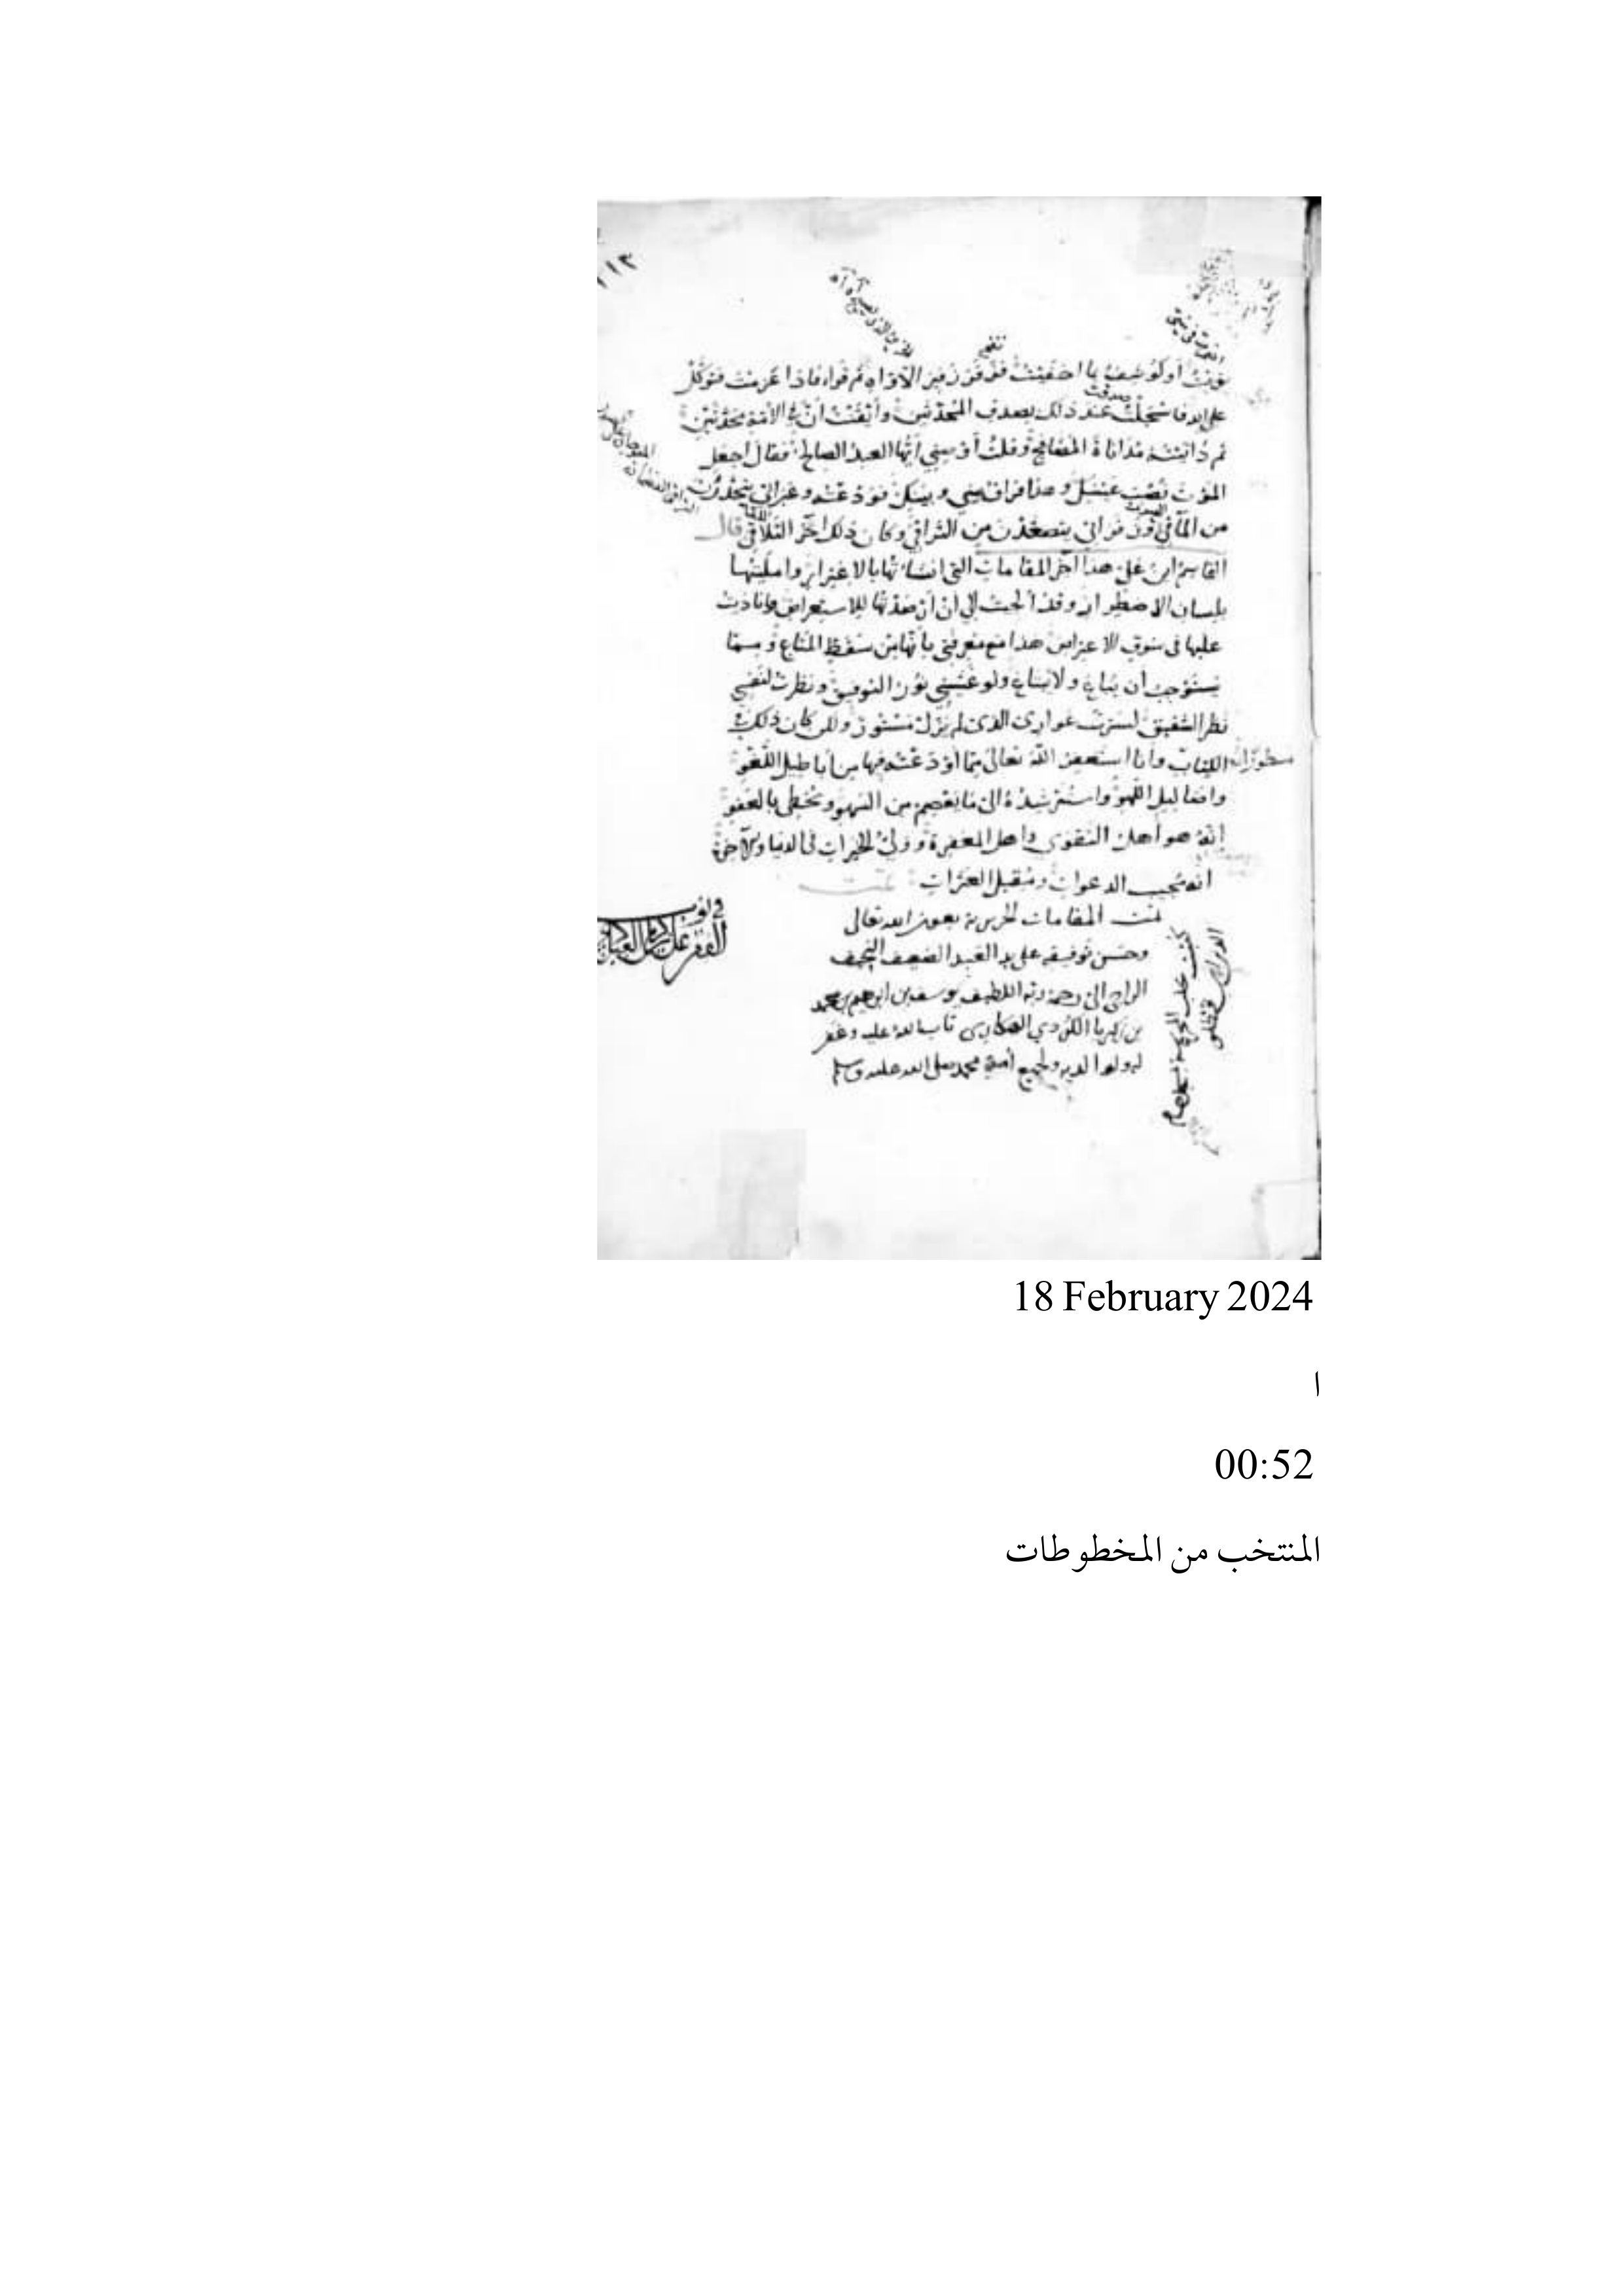 ١١٣
نويت او كوشف بما اخفيت فزفر زفير الاواه ثم قراء فاذا عزمت فتوكل
على الله فاسجلت عند ذلك بصدق المحدثين وأيقنت أن في الأمة محدثين
ثم دانيته مداناة المصافح وقلت أوصني أيها العبد الصالح فقال اجعل
الموت نصب عينيك وهذا فراق بيني وبينك فودعته وعبراتي يتحدرن
من المآقي وزفراتي يتصعدن من التراقي وكان ذلك آخر التلاقي قال
القاسم ابن علي هذا آخر المقامات التي انشأتها بالاغترار وامليتها
بلسان الاضطرار وقد ألجئت الى ان أرصدتها للاستعراض وناديت
عليها فى سوق الاعتراض هذا مع معرفتي بأنها من سقط المتاع ومما
يستوجب أن يباع ولا يبتاع ولو غشيني نور التوفيق ونظرت لنفسي
نظر الشفيق لسترت عوارى الذى لم يزل مستور ولكن كان ذلك في
الكتاب مسطورا وأنا استغفر الله تعالى مما أودعته فيها من أباطيل اللغو
واضاليل اللهو واسترشده الى ما يعصم من السهو ويحظى بالعفو
إنه هو أهل التقوى واهل المغفرة وولي الخيرات فى الدنيا والآخرة
انه مجيب الدعوات ومقيل العثرات تمت
تمت المقامات الحريرية بعون الله تعالى
وحسن توفيقه على يد العبد الضعيف النحيف
الراجي الى رحمة ربه اللطيف يوسف بن ابرهيم بن محمد
بن زكريا الكردي الهكارى تاب الله عليه وغفر
له ولوالديه ولجميع أمة محمد صلى الله عليه وسلم
18 February 2024
ا
00:52
المنتخب من المخطوطات